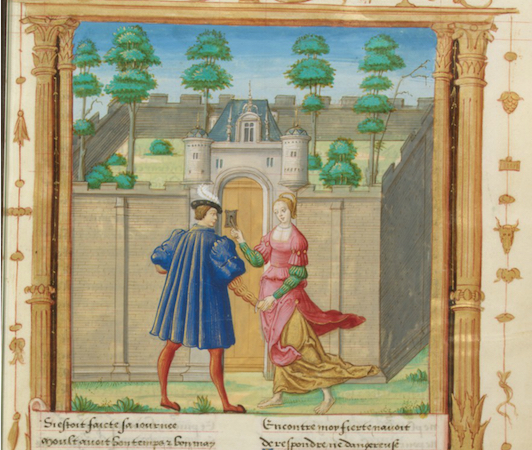 Si estoit faicte sa iournee
Moult auoit bon temps z bon may
Encontre moy fierte nauoit
De respondre ne dangereuse